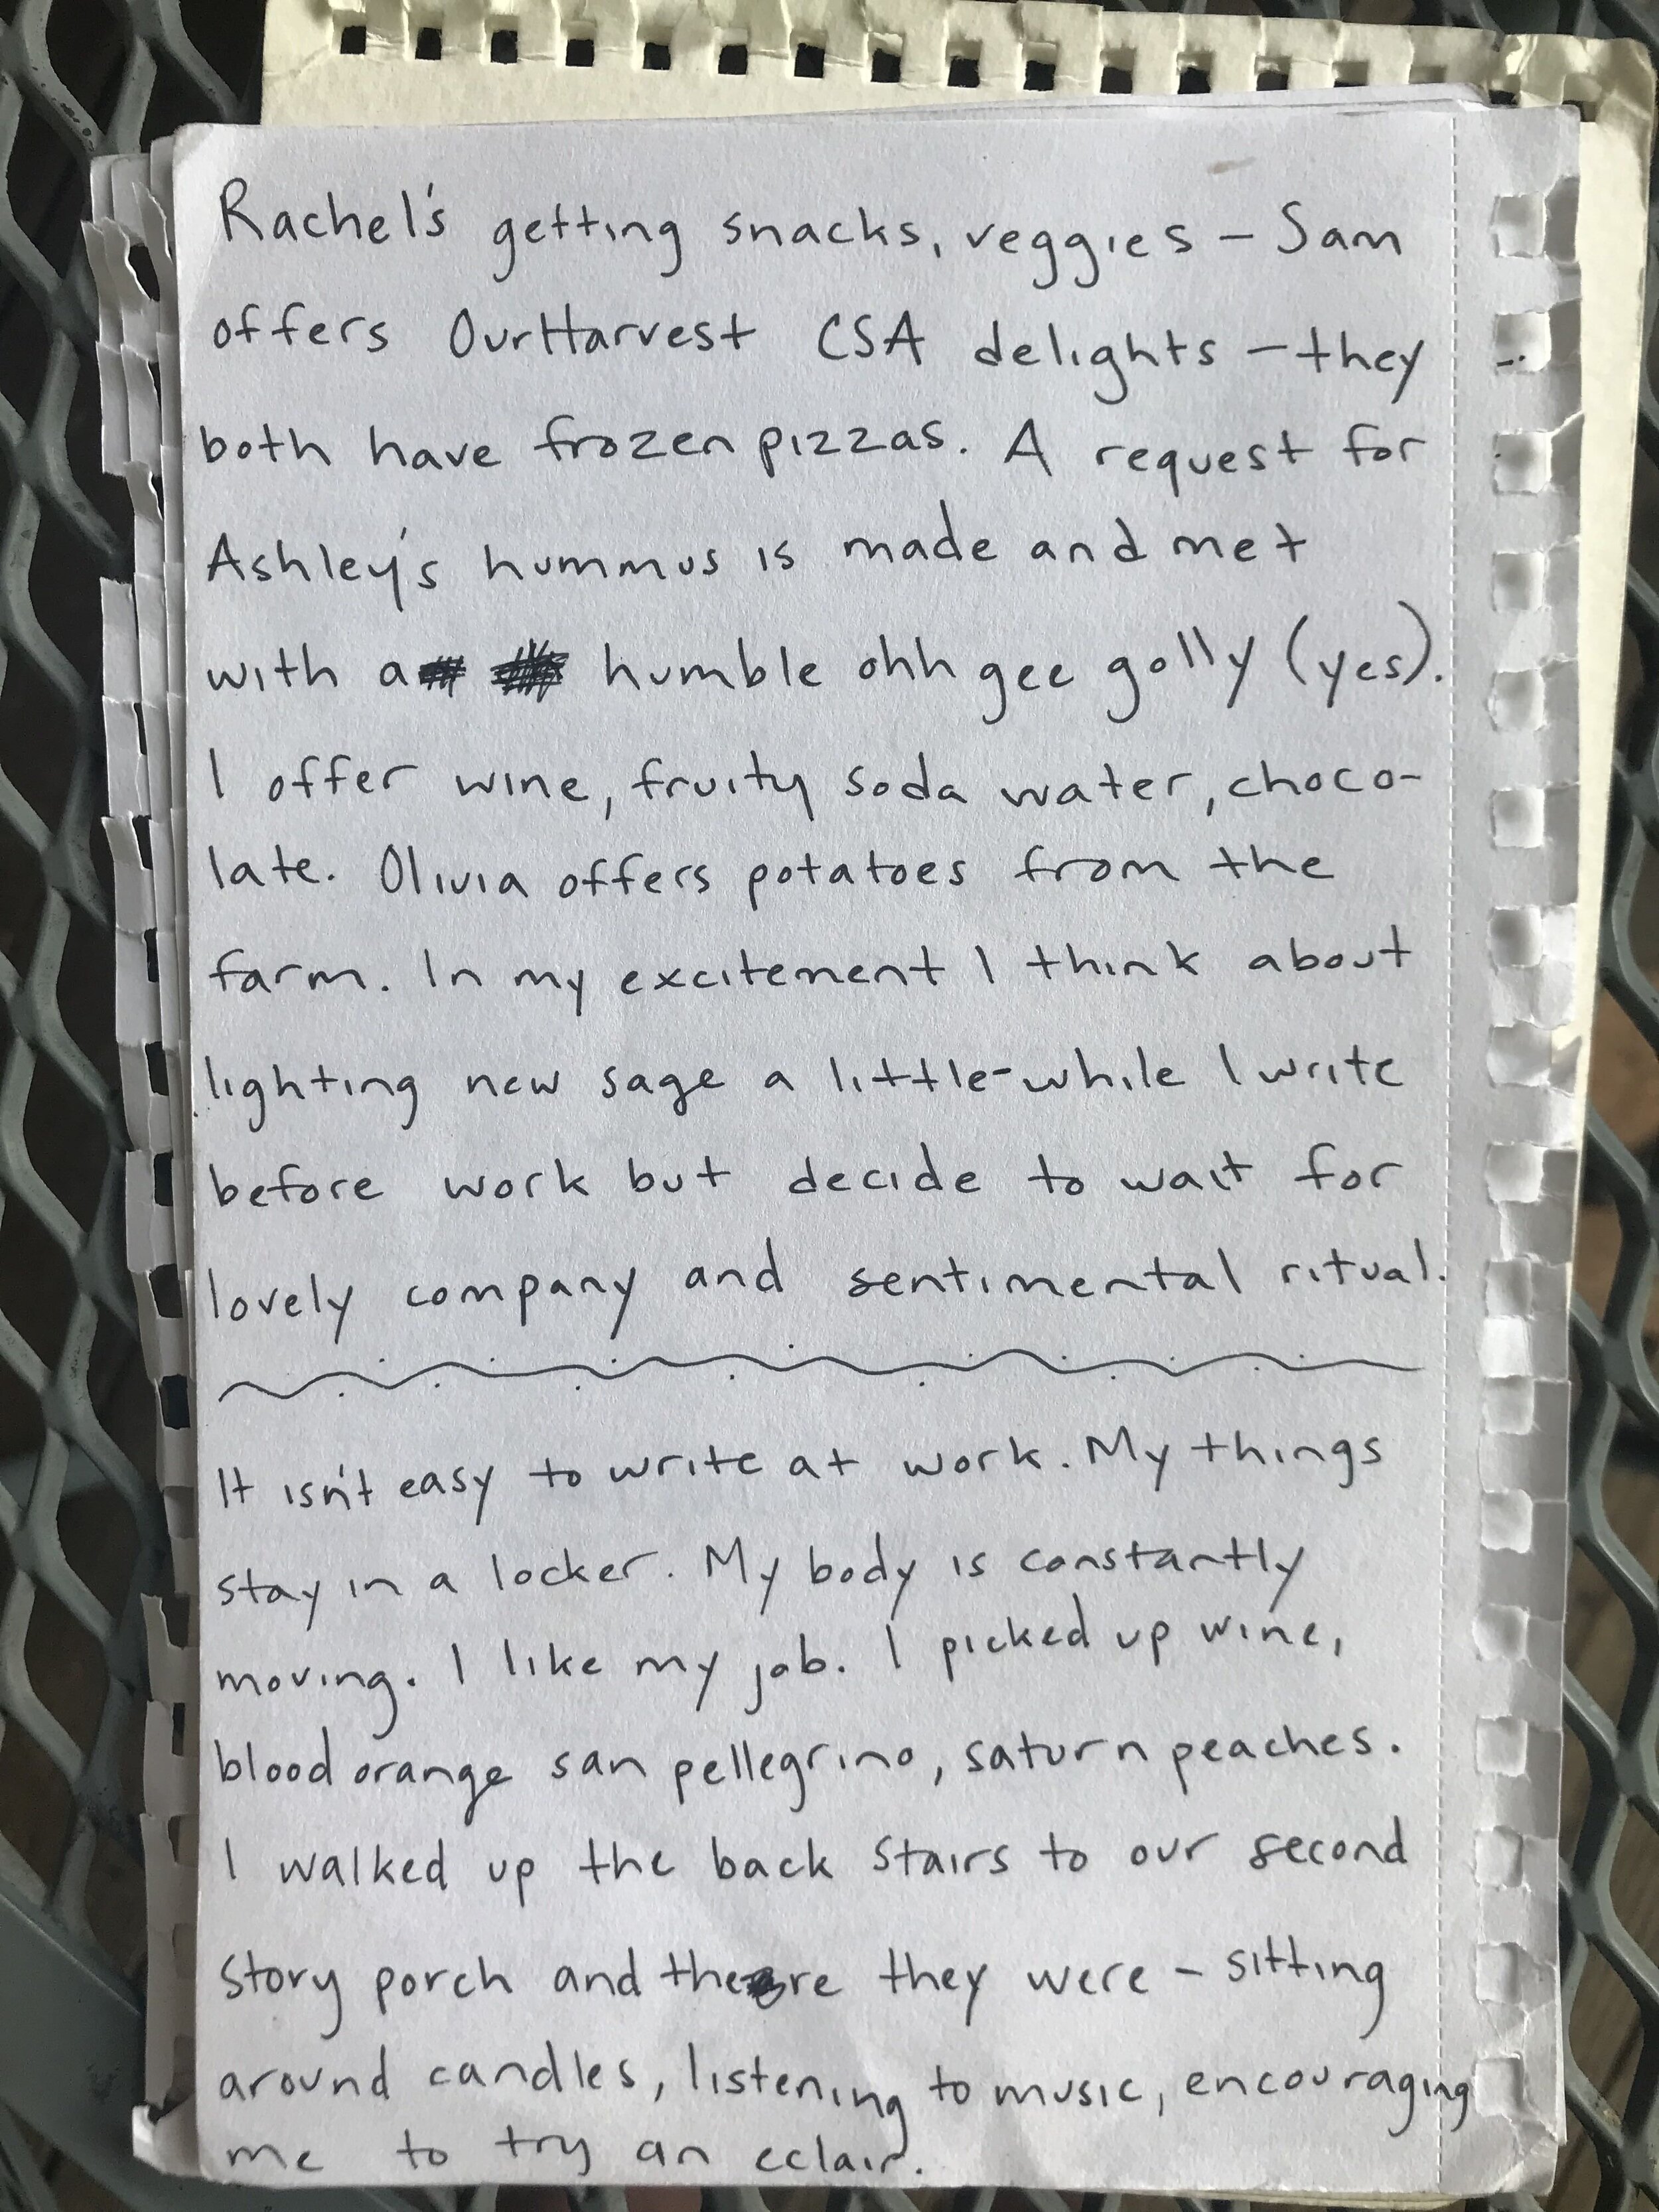 Rachel's getting snacks, veggies – Sam
offers OurHarvest CSA delights – they
both have frozen pizzas. A request for
Ashley's hummus is made and met
with a humble ohh gee golly (yes).
I offer wine, fruity soda water, choco-
late. Olivia offers potatoes from the
farm. In my excitement I think about
lighting new sage a little-while I write
before work but decide to wait for
lovely company and sentimental ritual.
It isn't easy to write at work. My things
stay in a locker. My body is constantly
moving. I like my job. I picked up wine,
blood orange san pellegrino, saturn peaches.
I walked up the back stairs to our second
story porch and there they were – sitting
around candles, listening to music, encouraging
me to try an eclair.